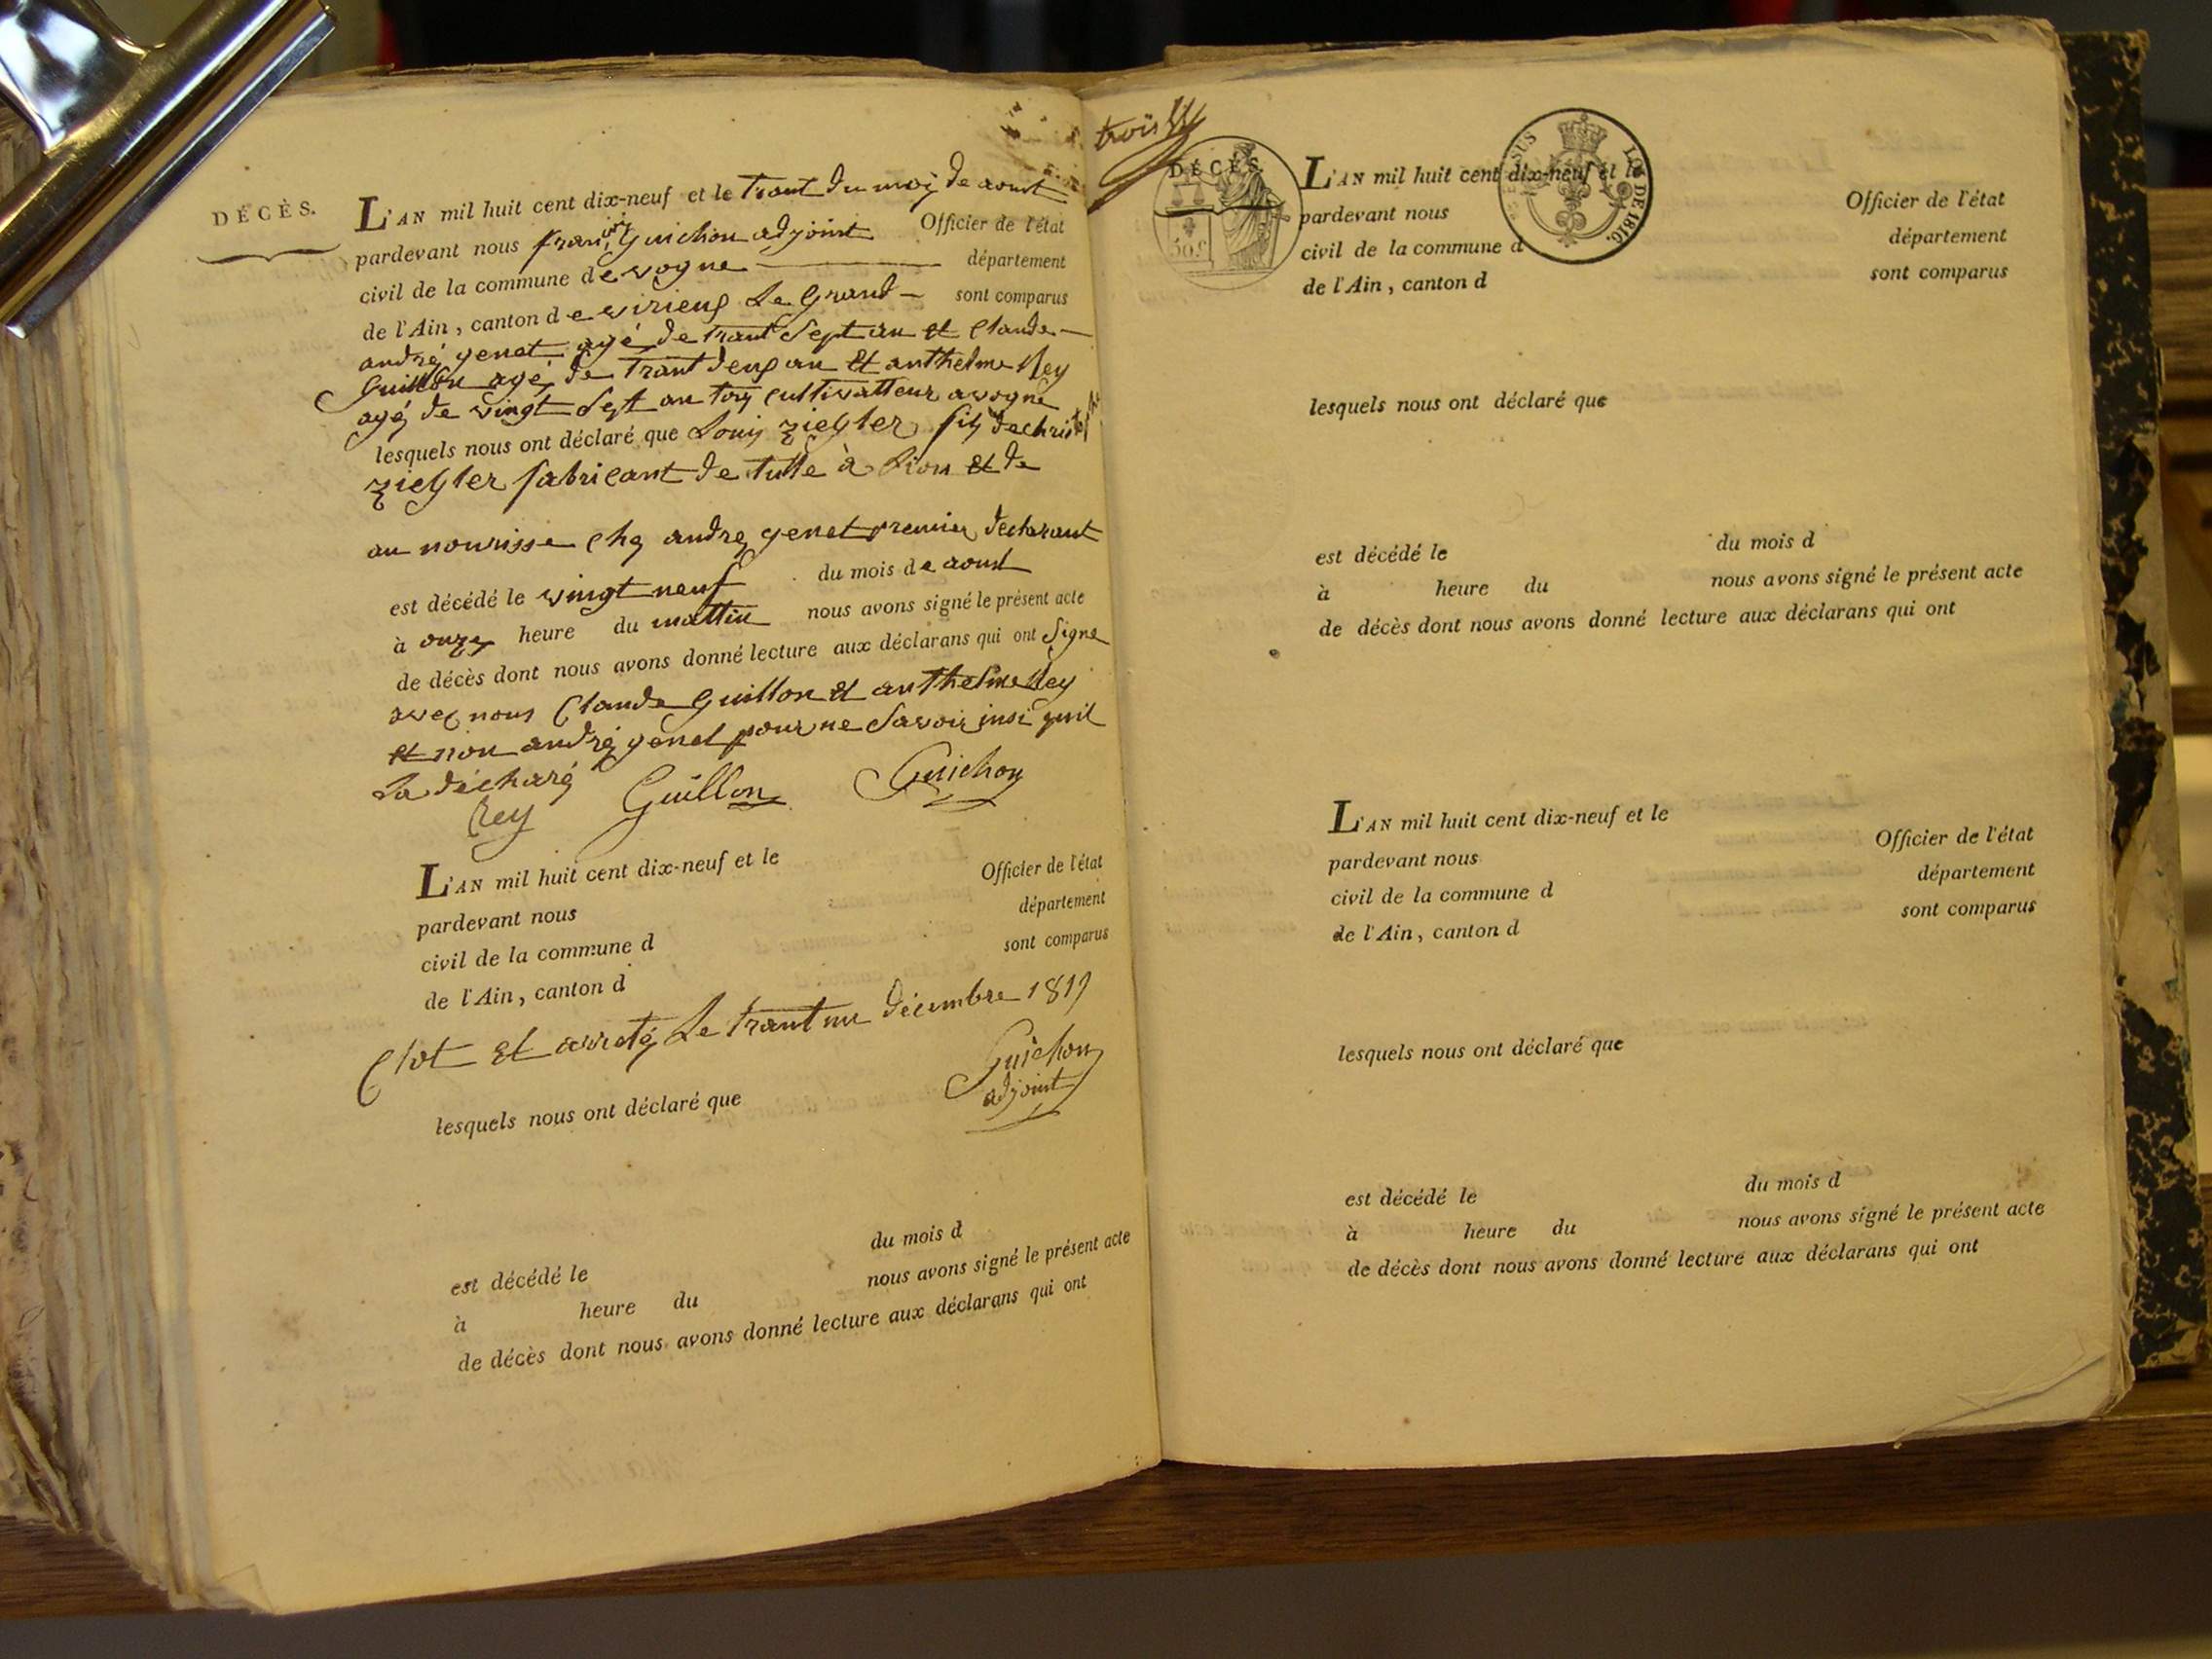 DÉCÈS.
L'AN mil huit cent dix-neuf et le trant du moy de aoust
pardevant nous françois Guichon adjoint Officier de l'état
civil de la commune de vogne département
de l'Ain, canton de virieux Le Grand sont comparus
andré genet agé de trant sept an et Claude
Guillon agé de trant deux an et anthelme Rey
agé de vingt sept an touy cultivatteur a vogne
lesquels nous ont déclaré que Louis ziegler fily de
ziegler fabricant de tulle à Lion et de
au nourisse chez andré genet premier déclarant
est décédé le vingt neuf du mois de aoust
à onze heure du mattin nous avons signé le présent acte
de décès dont nous avons donné lecture aux déclarans qui ont signe
avec nous Claude Guillon et anthelme Rey
et non andré genet pour ne savoir insi quil
La décharé
Rey Guillon Guichon
L'AN mil huit cent dix-neuf et le
pardevant nous Officier de l'état
civil de la commune d département
de l'Ain, canton d sont comparus
Clot et arreté Le trant un décembre 1819
Guichon
adjoint
lesquels nous ont déclaré que
est décédé le du mois d
à heure du nous avons signé le présent acte
de décès dont nous avons donné lecture aux déclarans qui ont
trois
DÉCÈS.
LOI DE 1816.
L'AN mil huit cent dix-neuf et le
pardevant nous Officier de l'état
civil de la commune d département
de l'Ain, canton d sont comparus
lesquels nous ont déclaré que
est décédé le du mois d
à heure du nous avons signé le présent acte
de décès dont nous avons donné lecture aux déclarans qui ont
L'AN mil huit cent dix-neuf et le
pardevant nous Officier de l'état
civil de la commune d département
de l'Ain, canton d sont comparus
lesquels nous ont déclaré que
est décédé le du mois d
à heure du nous avons signé le présent acte
de décès dont nous avons donné lecture aux déclarans qui ont